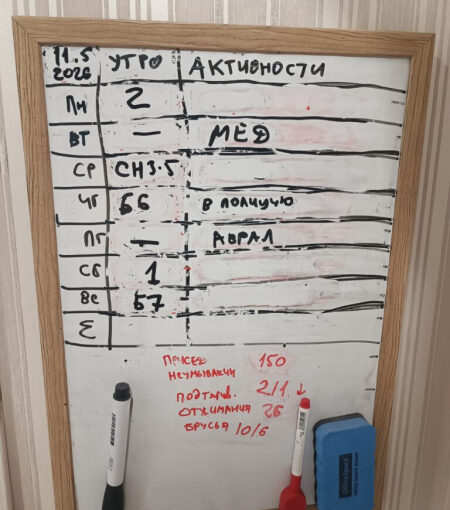 11.5 2026 УТРО АКТИВНОСТИ
ПН 2
ВТ — МЁД
СР СН3.5
ЧТ Б6 В ПОЛИЦИЮ
ПТ — АВРАЛ
СБ 1
ВС Б7
Σ
ПРИСЕД 150
НЕУМЫВАКИ
ПОДТЯГИВ. 2/1 ↓
ОТЖИМАНИЯ 26
БРУСЬЯ 10/6
OfficeSpace